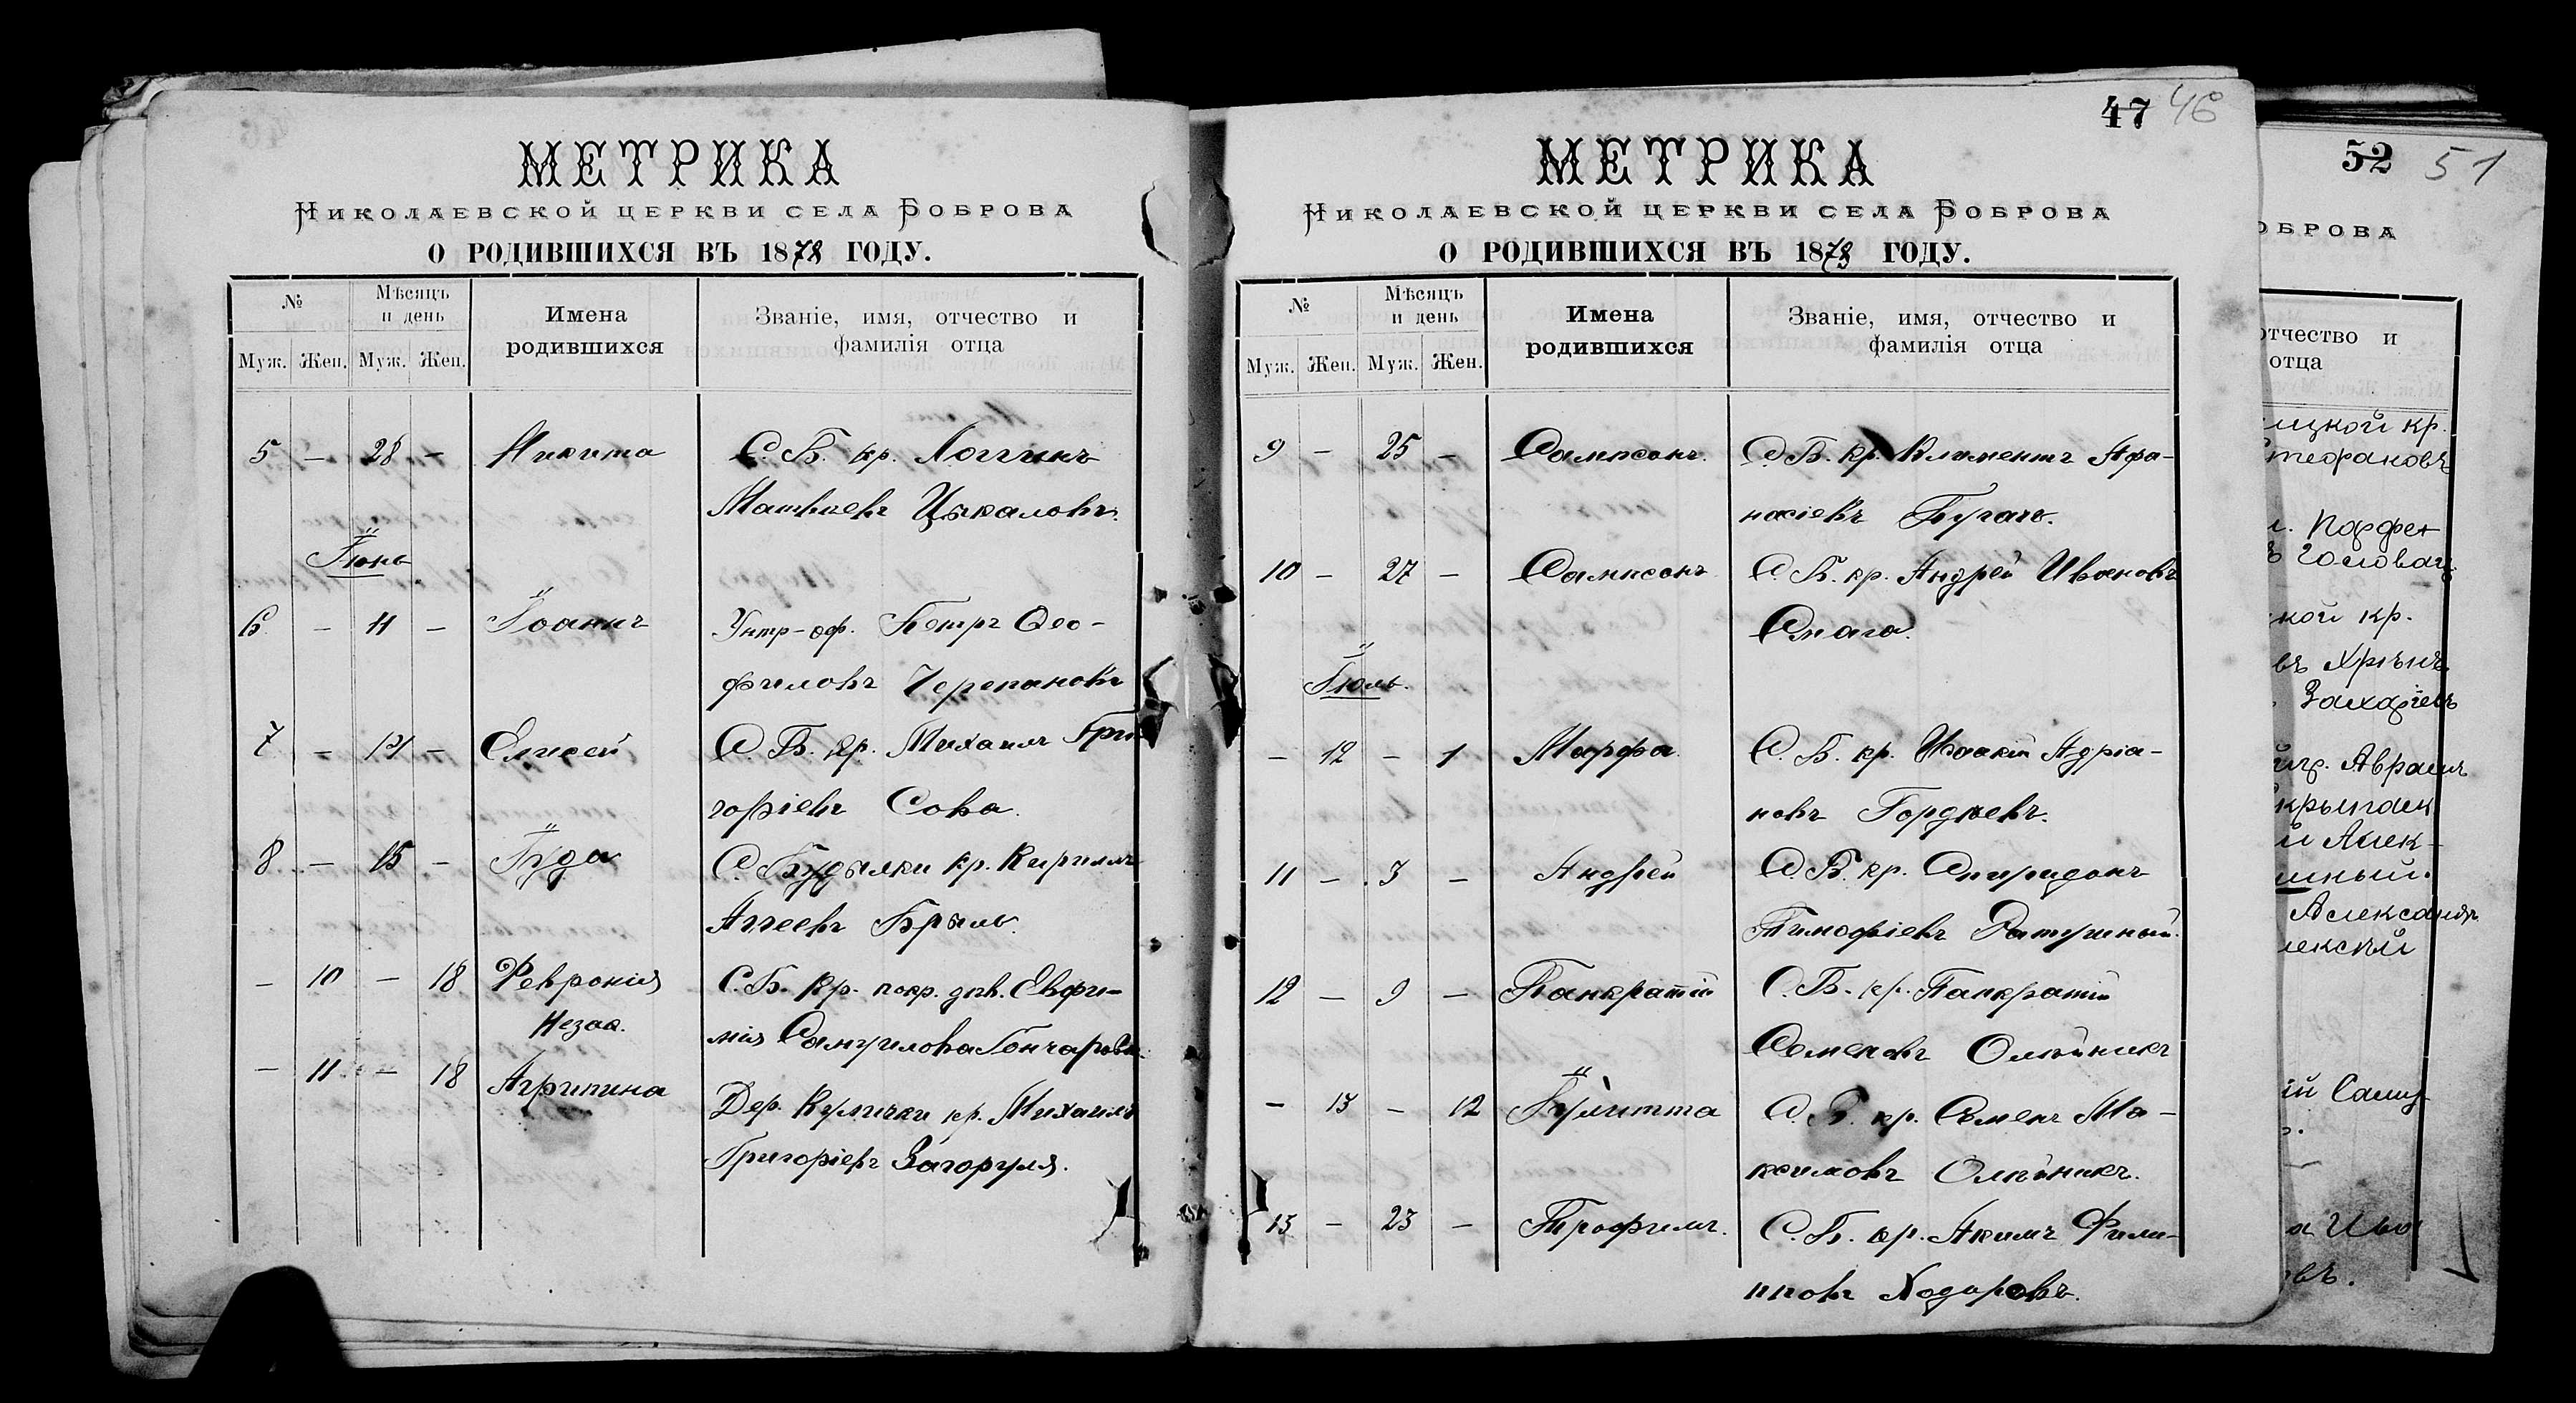 МЕТРИКА
НИКОЛАЕВСКОЙ ЦЕРКВИ СЕЛА БОБРОВА
О РОДИВШИХСЯ ВЪ 1878 ГОДУ.
№ Мѣсяцъ и день Имена родившихся Званіе, имя, отчество и фамилія отца
Муж. Жен. Муж. Жен.
5 — 28 — Никита С. Б. кр. Логгинъ
Матѳеевъ Цыкаловъ.
Іюнь
6 — 11 — Іоаннъ Унтр-оф. Петръ Ѳео-
филовъ Черепановъ
7 — 14 — Елисей С. Б. кр. Михаилъ Гри
горіевъ Сова.
8 — 15 — Іуда С. Будылки кр. Кириллъ
Аггеевъ Брыль.
— 10 — 18 Февронія С. Б. кр. покр. дѣв. Евфи-
Незак. мія Самуилова Гончарова.
— 11 — 18 Агрипина Дер. Кулички кр. Михаилъ
Григоріевъ Загоруля.
47 46
МЕТРИКА
НИКОЛАЕВСКОЙ ЦЕРКВИ СЕЛА БОБРОВА
О РОДИВШИХСЯ ВЪ 1878 ГОДУ.
№ Мѣсяцъ и день Имена родившихся Званіе, имя, отчество и фамилія отца
Муж. Жен. Муж. Жен.
9 — 25 — Сампсонъ. С. Б. кр. Климентъ Афа-
насіевъ Пугачь.
10 — 27 — Сампсонъ С. Б. кр. Андрей Ивановъ
Смага.
Іюль.
— 12 — 1 Марфа С. Б. кр. Іоакій Адріа-
новъ Гордѣевъ.
11 — 3 — Андрей С. Б. кр. Спиридонъ
Тимофіевъ Ратушный.
12 — 9 — Панкратій С. Б. кр. Панкратій
Семеновъ Олѣйникъ
— 13 — 12 Іулитта С. Б. кр. Семенъ Ма-
ксимовъ Олѣйникъ.
13 — 23 — Трофимъ. С. Б. кр. Акимъ Фили-
пповъ Ходаровъ.
52 51
ОБРОВА
отчество и
отца
ицкой кр.
Стефановъ
Парфен
Головач
кой кр.
въ Хрѣнъ
Захаріевъ
Авраамъ
й Алек-
шный.
Александръ
лекскій
ій Саму
въ.